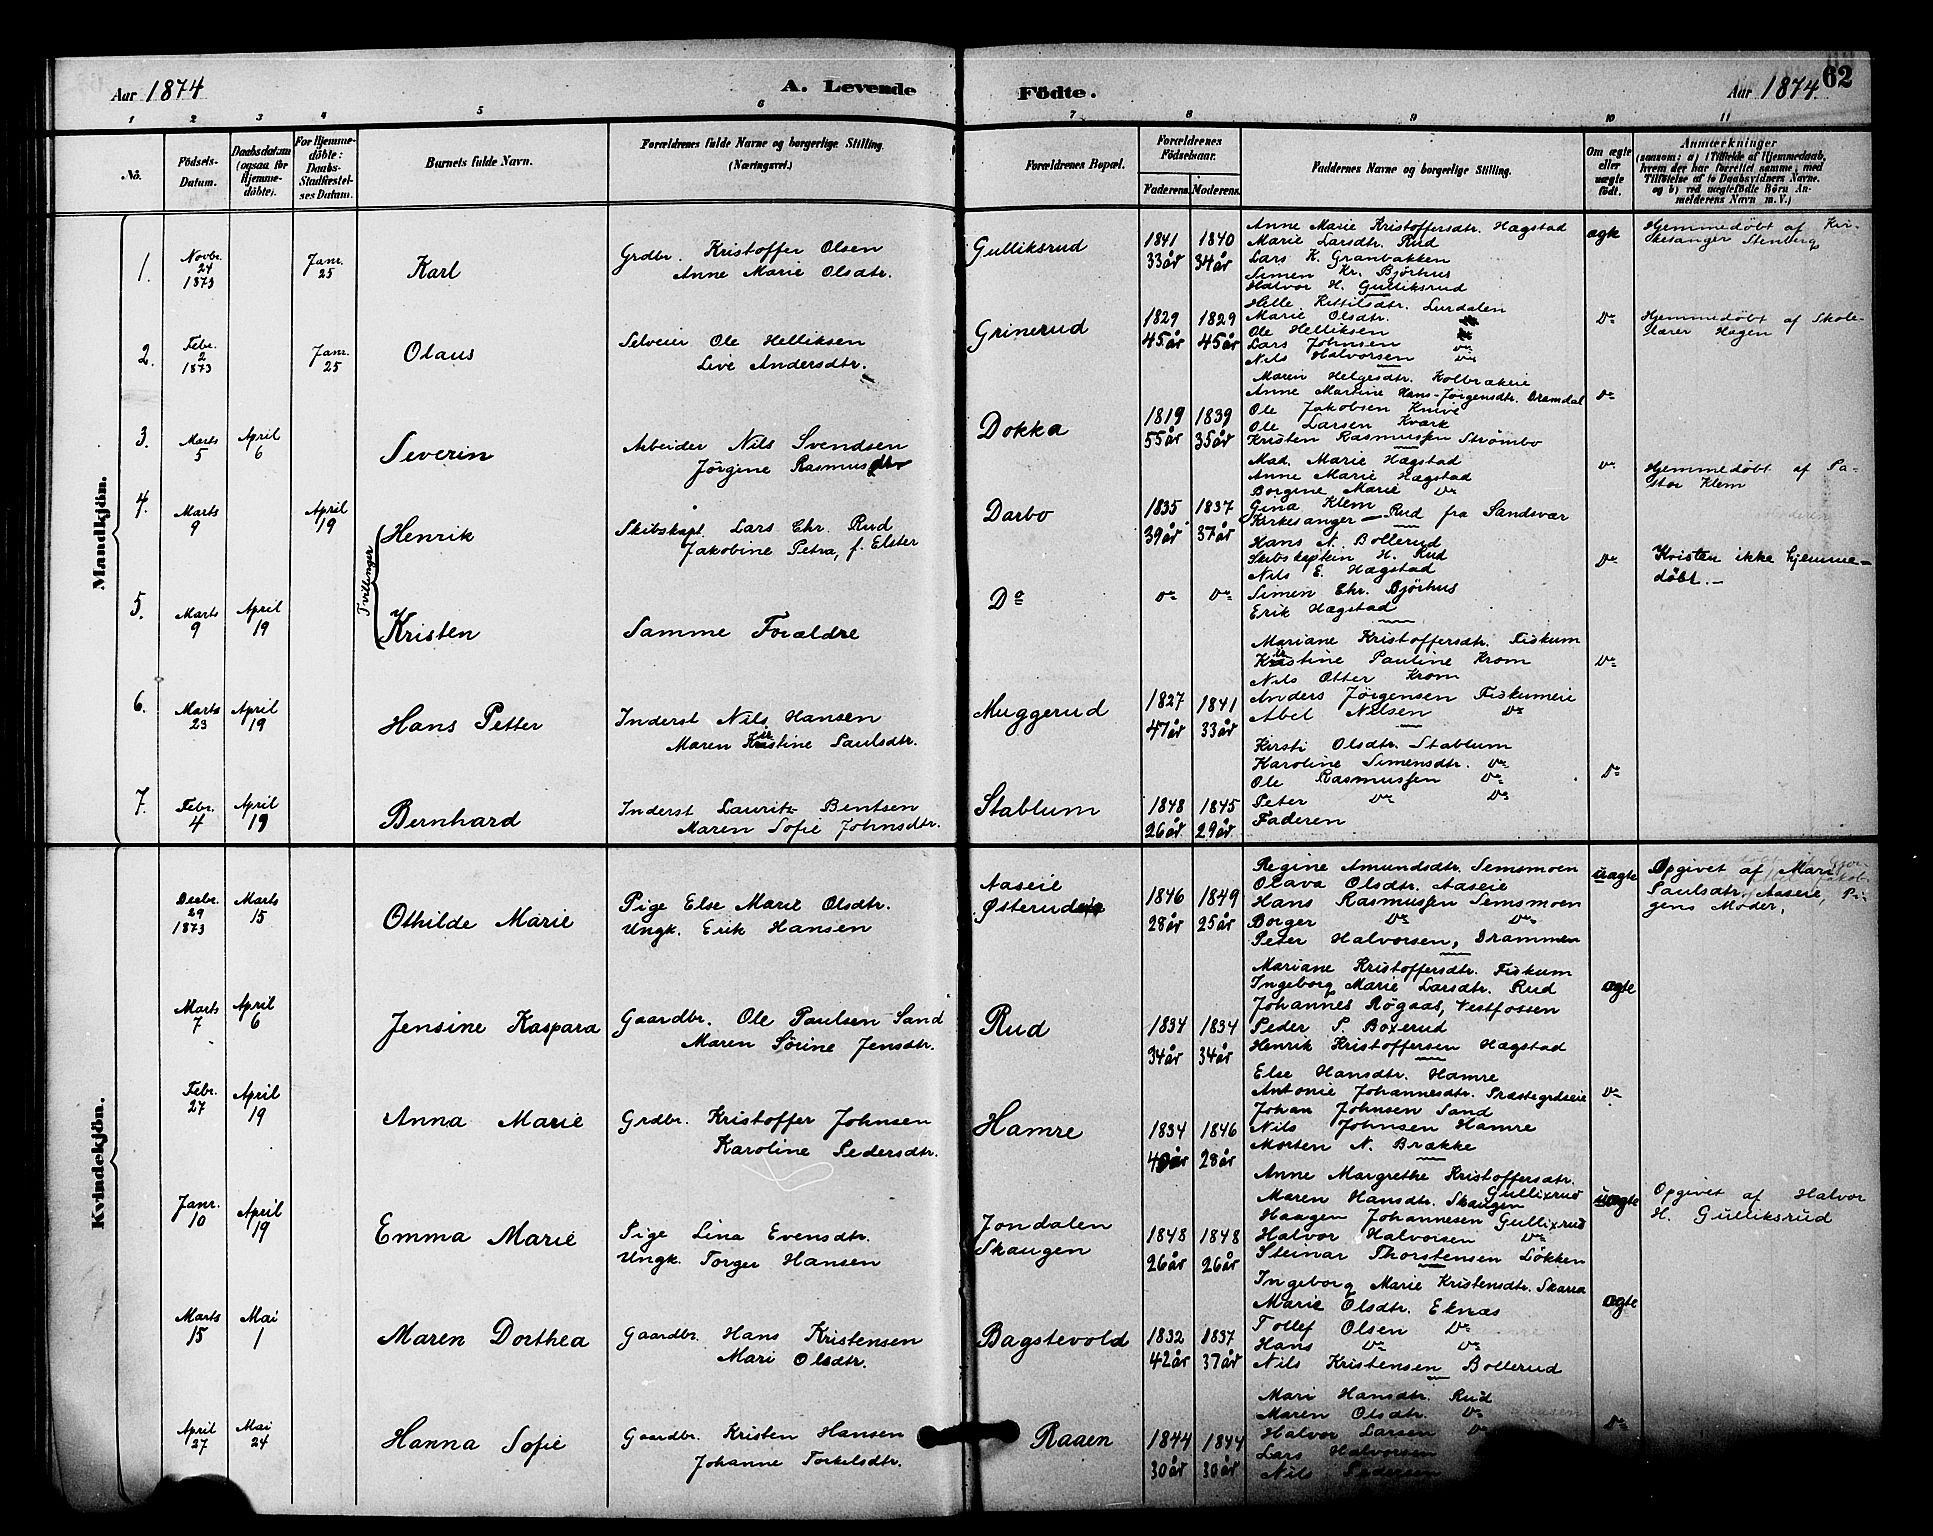 Aar 1874
A. Levende
Födte.
Aar 1874
62
1 2 3 4 5 6 7 8 9 10 11
No.
Födsels-
Datum.
Daabsdatum
(ogsaa for
Hjemme-
döbte).
For Hjemme-
döbte:
Daabs-
Stadfæstel-
ses Datum.
Barnets fulde Navn.
Forældrenes fulde Navne og borgerlige Stilling.
(Næringsvei.)
Forældrenes Bopæl.
Forældrenes
Födselsaar.
Faderens. Moderens.
Faddernes Navne og borgerlige Stilling.
Om ægte
eller
uægte
födt.
Anmærkninger
(saasom: a) i Tilfælde af Hjemmedaab,
hvem der har forrettet samme, med
Tilföielse af to Daabsvidners Navne.
og b) ved uægtefödte Börn An-
melderens Navn m. V.)
Mandkjön.
1.
Novbr.
24
1873
Janr.
25
Karl
Grdbr. Kristoffer Olsen
Anne Marie Olsdtr.
Gulliksrud
1841 1840
33år 34år
Anne Marie Kristoffersdtr. Hægstad
Marie Larsdtr. Rud
Lars K. Granbakken
Simen Kr. Bjørhus
Halvor H. Gulliksrud
ægte
Hjemmedøbt af Kir-
kesanger Stenberg
2.
Febr.
2
1873
Janr.
25
Olaus
Selveier Ole Helliksen
Live Andersdtr.
Grinerud
1829 1829
45år 45år
Helle Kittilsdtr. Lurdalen
Marie Olsdtr.
Ole Helliksen
Lars Johnsen Do
Nils Halvorsen Do
Do
Hjemmedøbt af Skole-
lærer Hagen
3.
Marts
5
April
6
Severin
Arbeider Nils Svendsen
Jørgine Rasmusdtr
Dokka
1819 1839
55år 35år
Maren Helgesdtr. Kolbrækeie
Anne Martine Hans-Jørgensdtr. Dramdal
Ole Jakobsen Knive
Ole Larsen Kværk
Kristen Rasmussen Strømbo
Do
4.
Marts
9
April
19
Tvillinger
Henrik
Skibskapt. Lars Chr. Rud
Jakobine Petra, f. Elster
Darbo
1835 1837
39år 37år
Mad. Marie Hægstad
Anne Marie Hægstad
Borgine Marie Do
Gina Klem
Kirkesanger Rud fra Sandsvær
Do
Hjemmedøbt af Pa-
stor Klem
5.
Marts
9
April
19
Kristen
Samme Forældre
Do
Do Do
Hans N. Bollerud
Skibskaptein H. Rud
Nils E. Hægstad
Simen Chr. Bjørhus
Erik Hægstad
Do
Kristen ikke hjemme-
døbt.
6.
Marts
23
April
19
Hans Petter
Inderst Nils Hansen
Maren Kirstine Paulsdtr.
Muggerud
1827 1841
47år 33år
Mariane Kristoffersdtr. Fiskum
Kirstine Pauline Krom
Nils Otter Krom
Anders Jørgensen Fiskumeie
Abel Nilsen Do
Do
7.
Febr.
4
April
19
Bernhard
Inderst Lauritz Bentsen
Maren Sofie Johnsdtr.
Stablum
1848 1845
26år 29år
Kirsti Olsdtr. Stablum
Karoline Simensdtr. Do
Ole Rasmussen Do
Peter Do Do
Faderen
Do
Kvindekjön.
Decbr.
29
1873
Marts
15
Othilde Marie
Pige Else Marie Olsdtr.
Ungk. Erik Hansen
Aaseie
Østerud
1846 1849
28år 25år
Regine Amundsdtr. Semsmoen
Olava Olsdtr. Aaseie
Hans Rasmussen Semsmoen
Borger Do Do
Peter Halvorsen, Drammen
uægte
Opgivet af Mari
Paulsdtr. Aaseie, Pi-
gens Moder,
Marts
7
April
6
Jensine Kaspara
Gaardbr. Ole Paulsen Sand
Maren Sørine Jensdtr.
Rud
1834 1834
34år 34år
Mariane Kristoffersdtr. Fiskum
Ingeborg Marie Larsdtr. Rud
Johannes Røgaas, Vestfossen
Peder P. Boxerud
Henrik Kristoffersen Hægstad
ægte
Febr.
27
April
19
Anna Marie
Grdbr. Kristoffer Johnsen
Karoline Pedersdtr.
Hamre
1834 1846
40år 28år
Else Hansdtr. Hamre
Antonie Johannesdtr. Præstegrdseie
Johan Johnsen Sand
Nils Johnsen Hamre
Morten N. Brække
Do
Janr.
10
April
19
Emma Marie
Pige Lina Evensdtr.
Ungk. Torger Hansen
Jondalen
Skaugen
1848 1848
26år 26år
Anne Margrethe Kristoffersdtr.
Gullixrud
Maren Hansdtr. Skaugen
Haagen Johannesen Gullixrud
Halvor Halvorsen Do
Steinar Thorstensen Løkken
uægte
Opgivet af Halvor
H. Gulliksrud
Marts
15
Mai
1
Maren Dorthea
Gaardbr. Hans Kristensen
Mari Olsdtr.
Bagstevold
1832 1837
42år 37år
Ingeborg Marie Kristensdtr. Skarra
Marie Olsdtr. Eknæs
Tollef Olsen Do
Hans Do Do
Nils Kristensen Bollerud
ægte
April
27
Mai
24
Hanna Sofie
Gaardbr. Kristen Hansen
Johanne Torkelsdtr.
Raaen
1844 1844
30år 30år
Mari Hansdtr. Rud
Maren Olsdtr. Do
Halvor Larsen Do
Lars Halvorsen
Nils Pedersen
Do